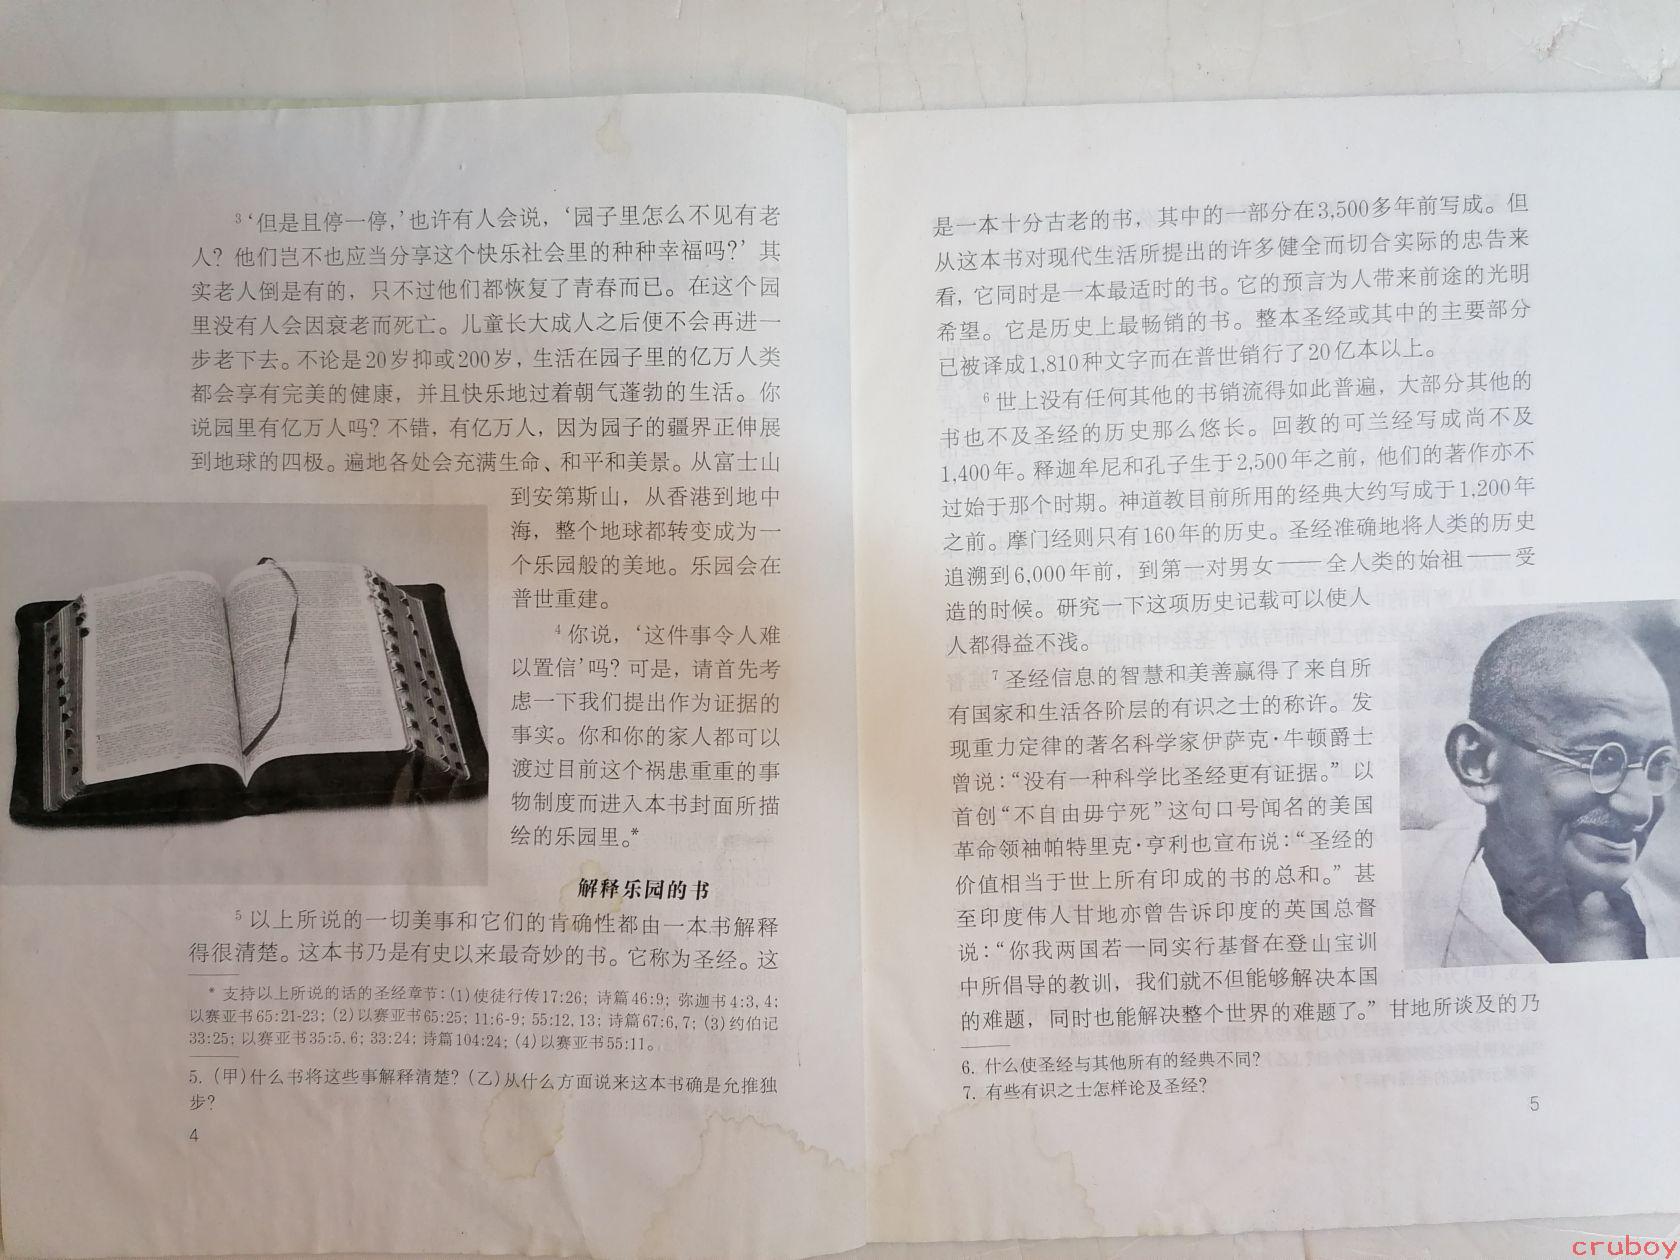 3 ‘但是且停一停,’也许有人会说，‘园子里怎么不见有老
人？他们岂不也应当分享这个快乐社会里的种种幸福吗？’其
实老人倒是有的，只不过他们都恢复了青春而已。在这个园
里没有人会因衰老而死亡。儿童长大成人之后便不会再进一
步老下去。不论是20岁抑或200岁，生活在园子里的亿万人类
都会享有完美的健康，并且快乐地过着朝气蓬勃的生活。你
说园里有亿万人吗？不错，有亿万人，因为园子的疆界正伸展
到地球的四极。遍地各处会充满生命、和平和美景。从富士山
到安第斯山，从香港到地中
海，整个地球都转变成为一
个乐园般的美地。乐园会在
普世重建。
4 你说，‘这件事令人难
以置信’吗？可是，请首先考
虑一下我们提出作为证据的
事实。你和你的家人都可以
渡过目前这个祸患重重的事
物制度而进入本书封面所描
绘的乐园里。*
解释乐园的书
5 以上所说的一切美事和它们的肯确性都由一本书解释
得很清楚。这本书乃是有史以来最奇妙的书。它称为圣经。这
* 支持以上所说的话的圣经章节：(1)使徒行传17:26；诗篇46:9；弥迦书4:3, 4；
以赛亚书65:21-23；(2)以赛亚书65:25；11:6-9；55:12, 13；诗篇67:6, 7；(3)约伯记
33:25；以赛亚书35:5, 6；33:24；诗篇104:24；(4)以赛亚书55:11。
5. (甲)什么书将这些事解释清楚？(乙)从什么方面说来这本书确是允推独
步？
4
是一本十分古老的书，其中的一部分在3,500多年前写成。但
从这本书对现代生活所提出的许多健全而切合实际的忠告来
看，它同时是一本最适时的书。它的预言为人带来前途的光明
希望。它是历史上最畅销的书。整本圣经或其中的主要部分
已被译成1,810种文字而在普世销行了20亿本以上。
6 世上没有任何其他的书销流得如此普遍，大部分其他的
书也不及圣经的历史那么悠长。回教的可兰经写成尚不及
1,400年。释迦牟尼和孔子生于2,500年之前，他们的著作亦不
过始于那个时期。神道教目前所用的经典大约写成于1,200年
之前。摩门经则只有160年的历史。圣经准确地将人类的历史
追溯到6,000年前，到第一对男女——全人类的始祖——受
造的时候。研究一下这项历史记载可以使人
人都得益不浅。
7 圣经信息的智慧和美善赢得了来自所
有国家和生活各阶层的有识之士的称许。发
现重力定律的著名科学家伊萨克·牛顿爵士
曾说：“没有一种科学比圣经更有证据。”以
首创“不自由毋宁死”这句口号闻名的美国
革命领袖帕特里克·亨利也宣布说：“圣经的
价值相当于世上所有印成的书的总和。”甚
至印度伟人甘地亦曾告诉印度的英国总督
说：“你我两国若一同实行基督在登山宝训
中所倡导的教训，我们就不但能够解决本国
的难题，同时也能解决整个世界的难题了。”甘地所谈及的乃
6. 什么使圣经与其他所有的经典不同？
7. 有些有识之士怎样论及圣经？
5
cruboy